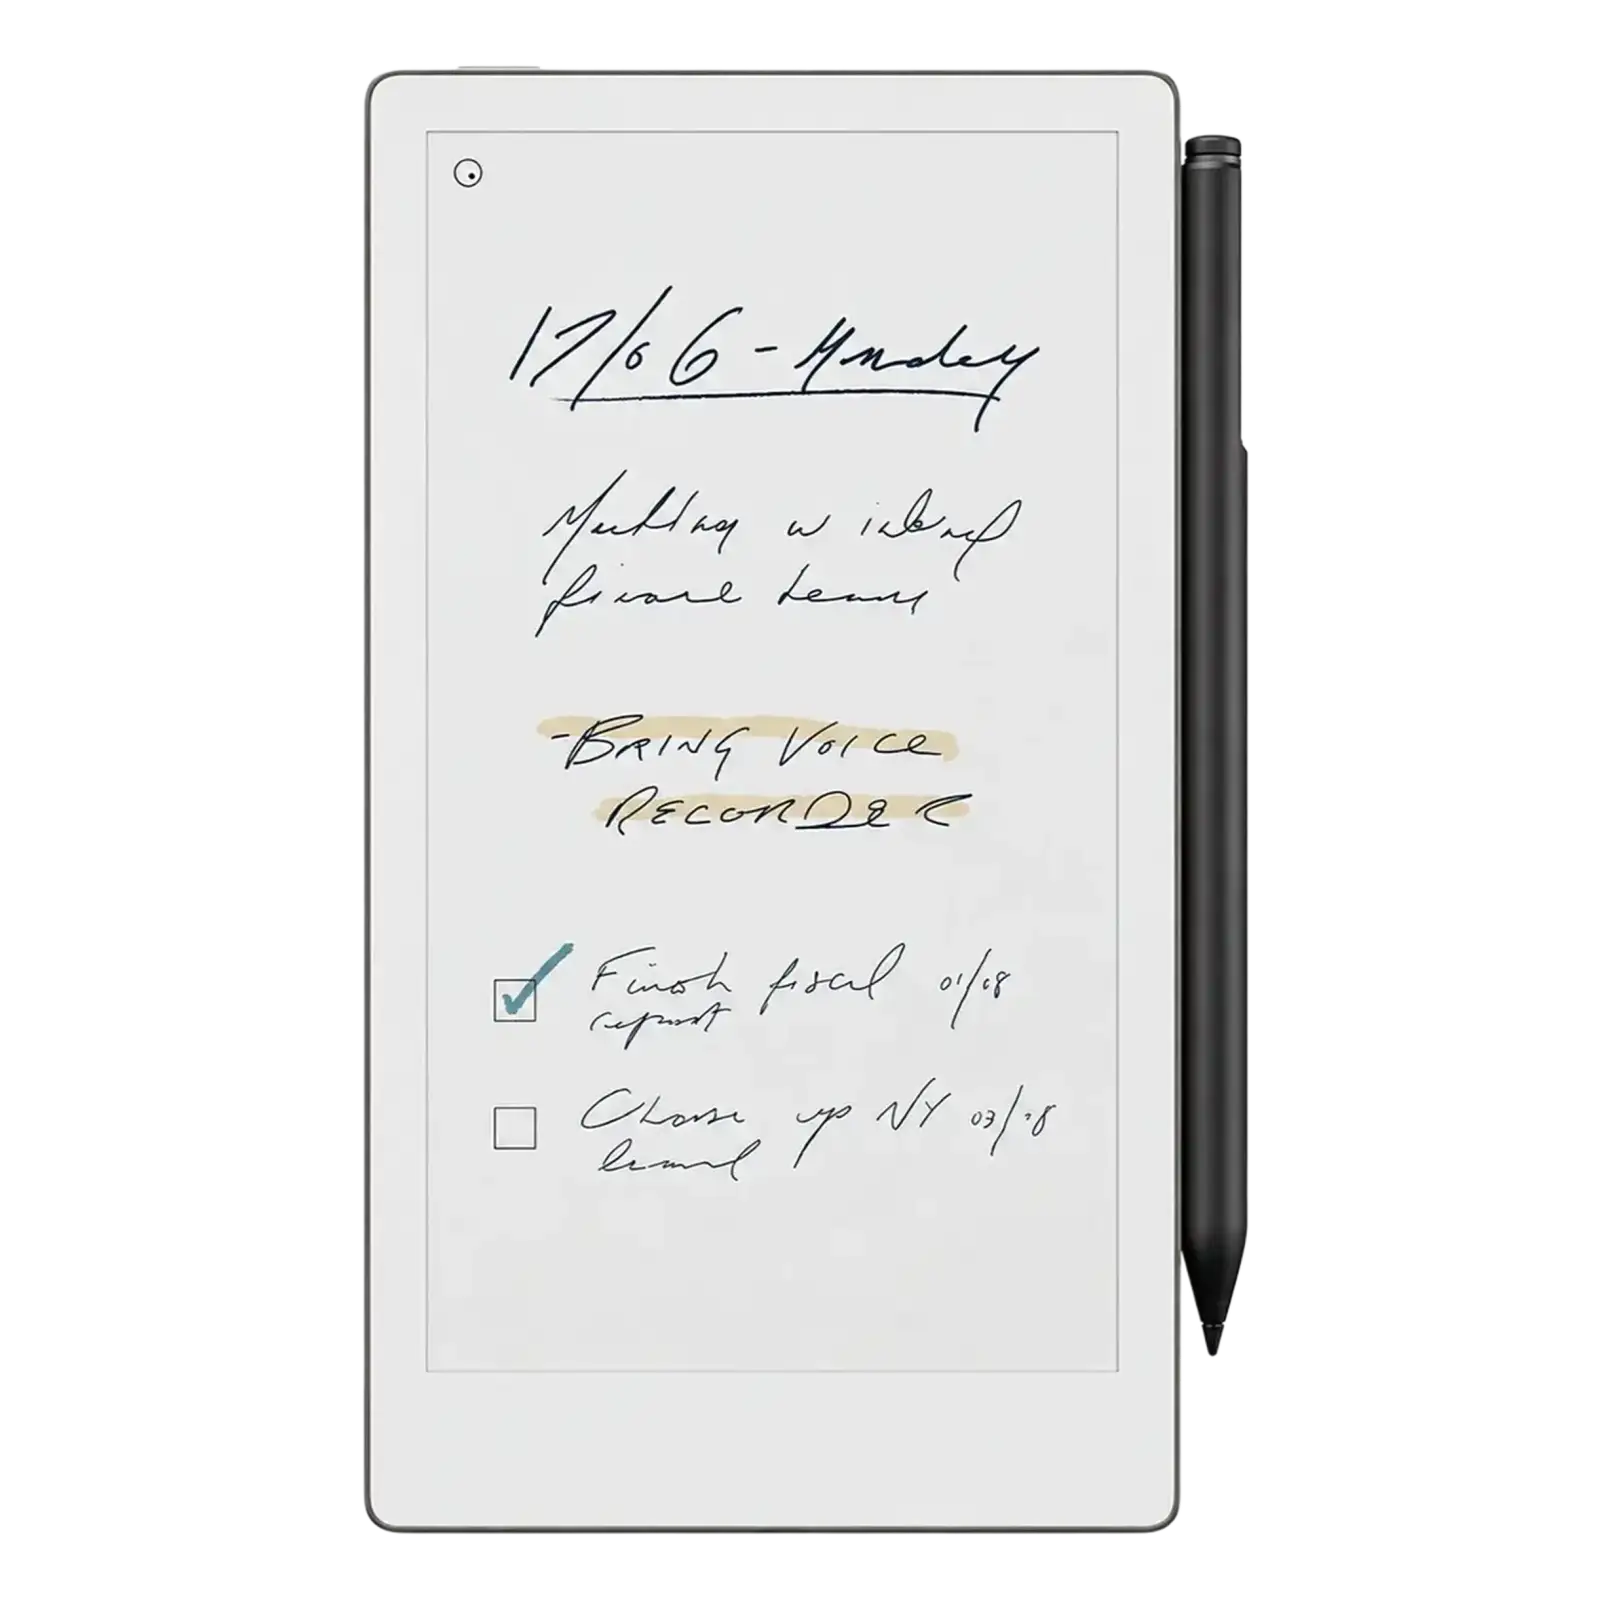 17/06 - Monday
Meeting w internal
finance team
- BRING VOICE
RECORDER
Finish fiscal 01/08
report
up NY 03/08